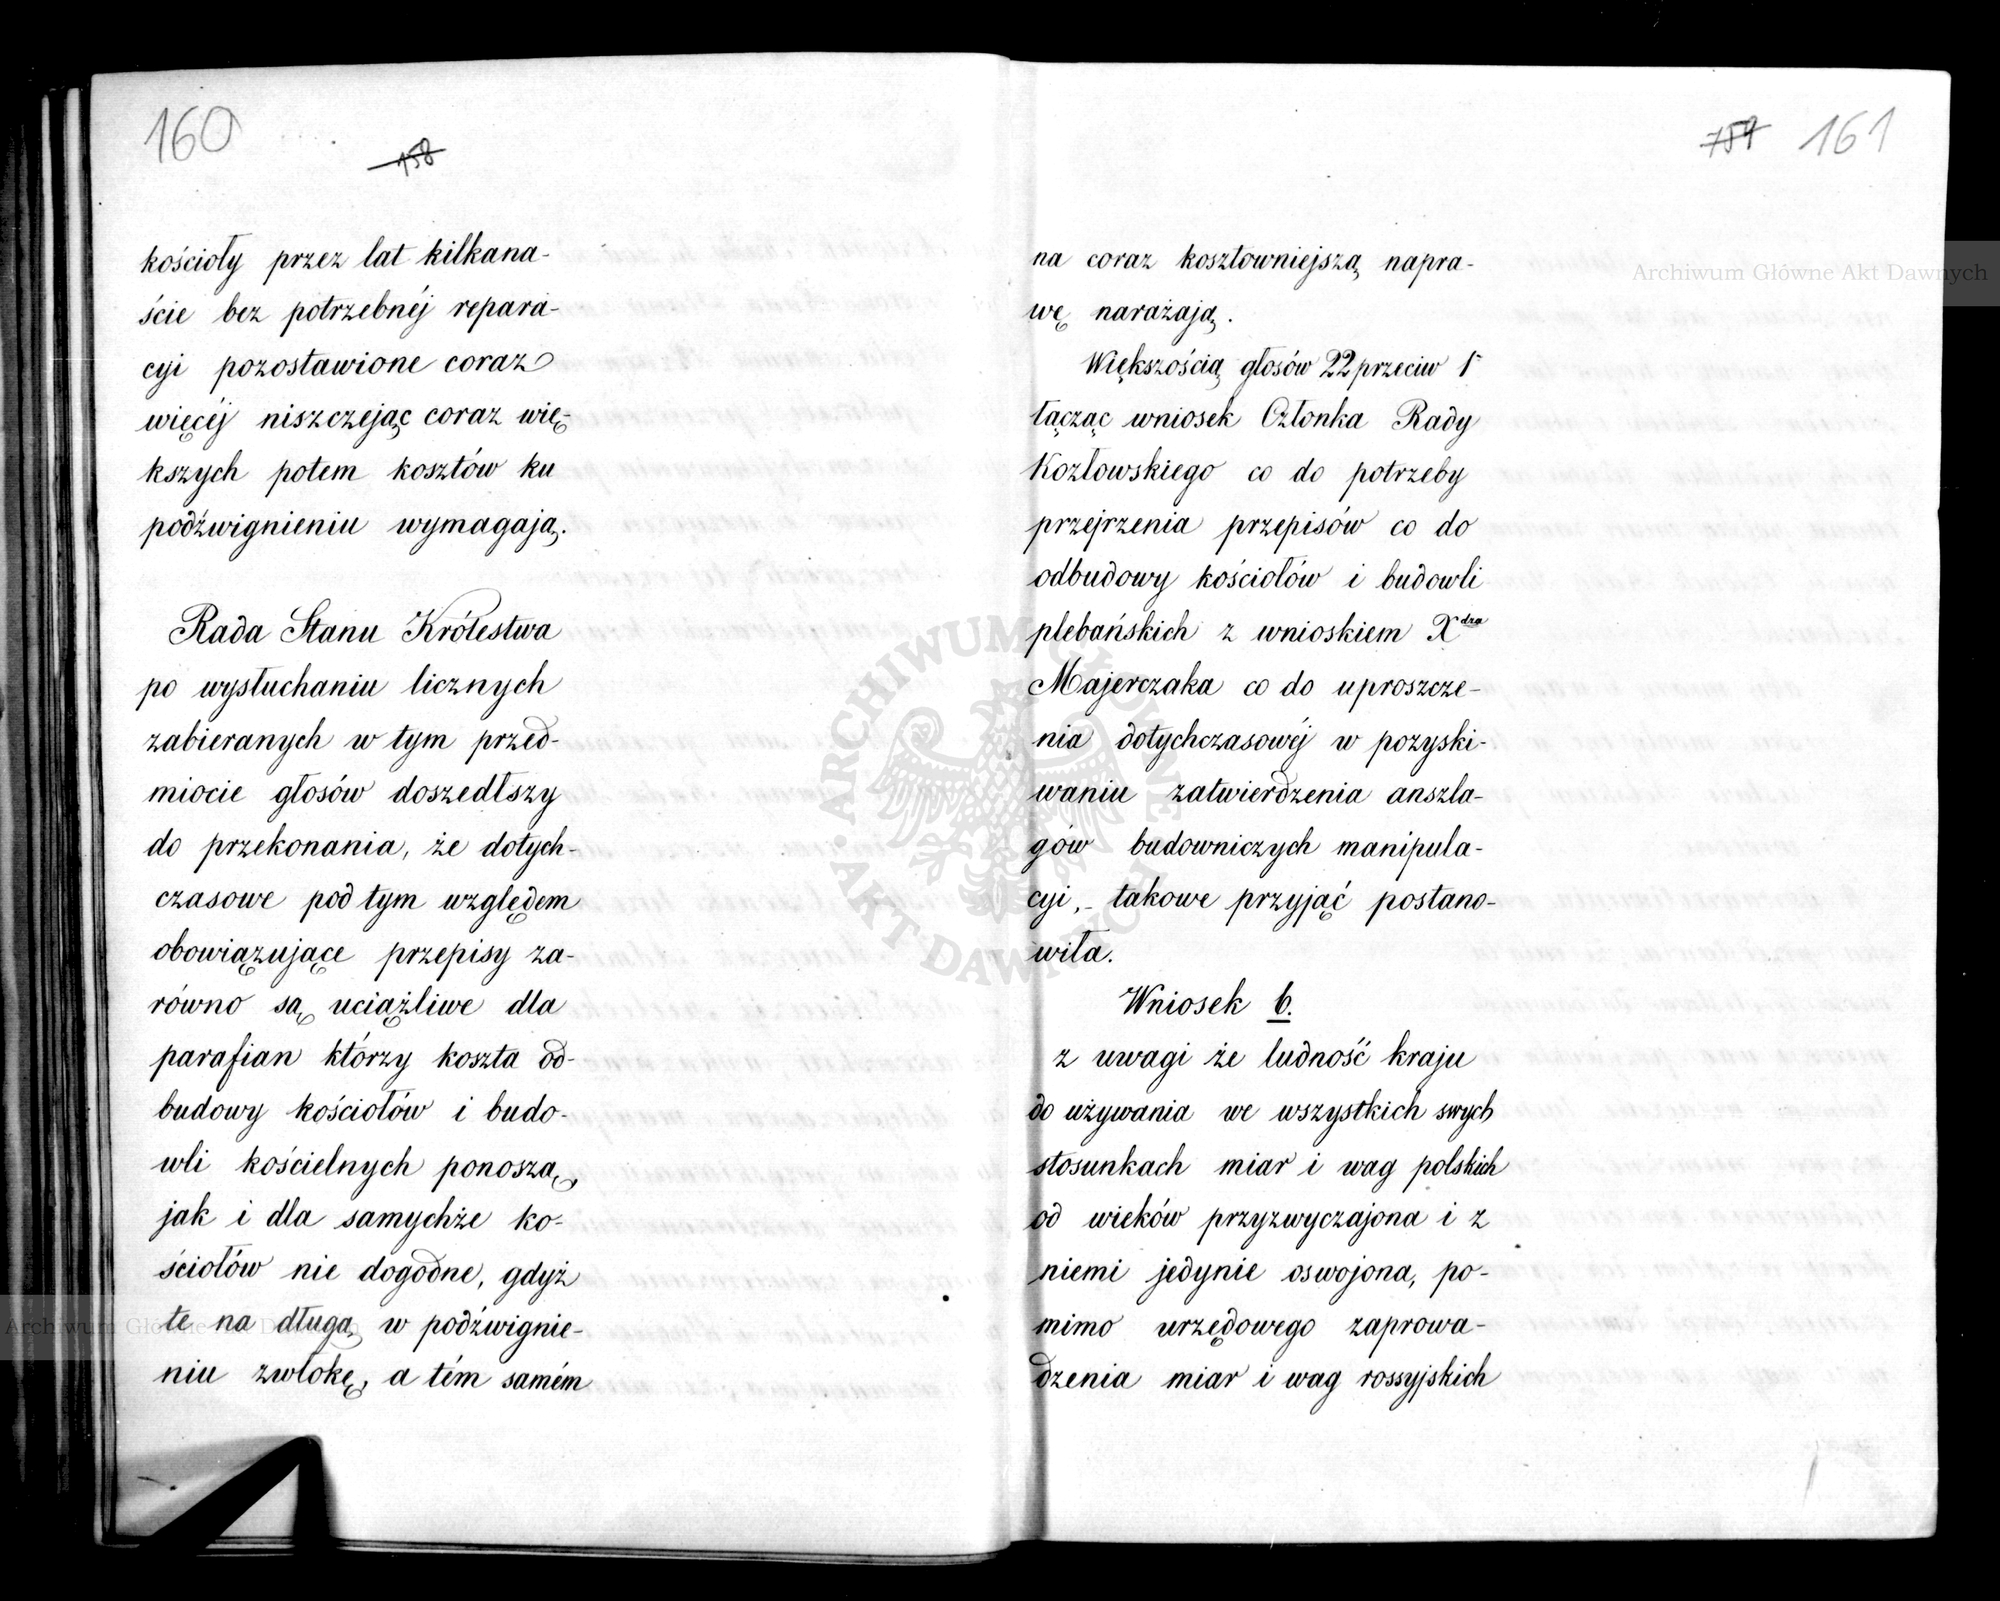 160
158
kościoły przez lat kilkana-
ście bez potrzebnéj repara-
cyi pozostawione coraz
więcéj niszczejąc coraz wię-
kszych potem kosztów ku
podźwignieniu wymagają.
Rada Stanu Królestwa
po wysłuchaniu licznych
zabieranych w tym przed-
miocie głosów doszedłszy
do przekonania, że dotych-
czasowe pod tym względem
obowiązujące przepisy za-
równo są uciążliwe dla
parafian którzy koszta od-
budowy kościołów i budo-
wli kościelnych ponoszą,
jak i dla samychże ko-
ściołów nie dogodne, gdyż
te na długą w podźwignie-
niu zwłokę, a tém samém
159 161
na coraz kosztowniejszą napra-
wę narażają.
Większością głosów 22 przeciw 1
łącząc wniosek Członka Rady
Kozłowskiego co do potrzeby
przejrzenia przepisów co do
odbudowy kościołów i budowli
plebańskich z wnioskiem Xdza
Majerczaka co do uproszcze-
nia dotychczasowéj w pozyski-
waniu zatwierdzenia anszla-
gów budowniczych manipula-
cyi, takowe przyjąć postano-
wiła.
Wniosek 6.
z uwagi że ludność kraju
do używania we wszystkich swych
stosunkach miar i wag polskich
od wieków przyzwyczajona i z
niemi jedynie oswojona, po-
mimo urzędowego zaprowa-
dzenia miar i wag rossyjskich
Archiwum Główne Akt Dawnych
Archiwum Główne Akt Dawnych
ARCHIWUM GŁÓWNE AKT DAWNYCH